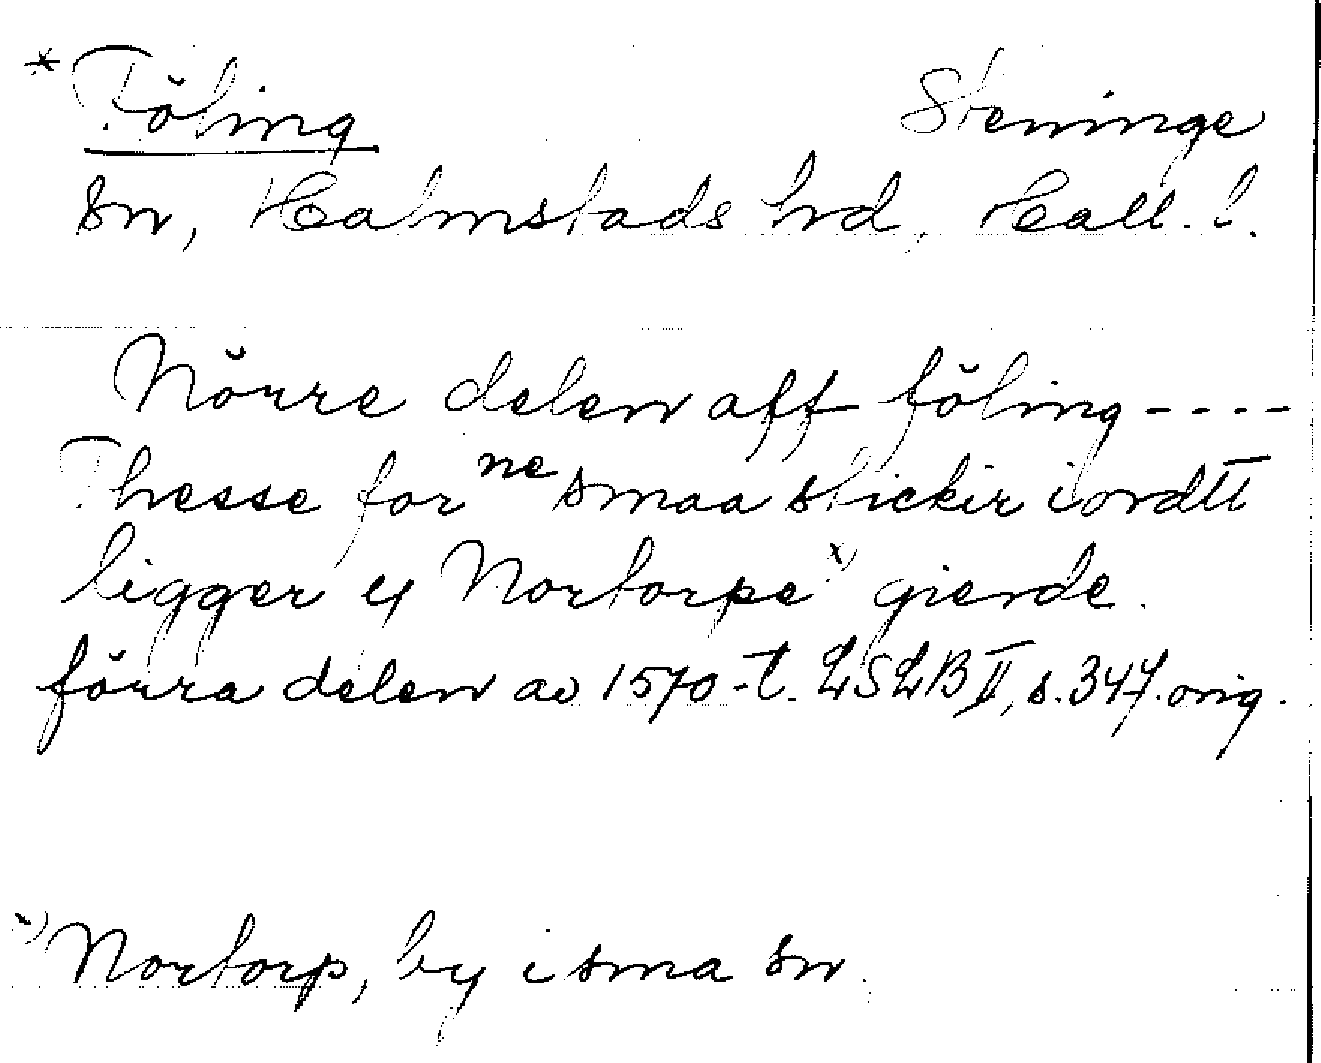 * Föling Steninge
sn, Halmstads hrd, Hall. l.
Nörre delen aff föling ----
Thesse for ne smaa stickir iordtt
ligger y Nortorpe x) gierde.
förra delen av 1570-t. LSLB II, s. 347. orig.
x) Nortorp, by i sma sn.